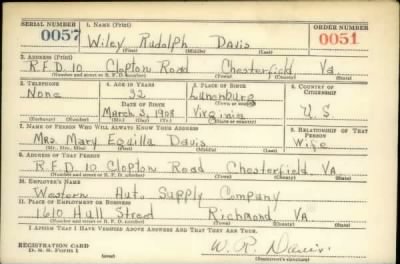 SERIAL NUMBER 1. NAME (Print) ORDER NUMBER
0057 Wiley Rudolph Davis 0051
(First) (Middle) (Last)
2. ADDRESS (Print)
R.F.D. 10 Clopton Road Chesterfield Va.
(Number and street or R. F. D. number) (Town) (County) (State)
3. TELEPHONE 4. AGE IN YEARS 5. PLACE OF BIRTH 6. COUNTRY OF CITIZENSHIP
None 32 Lunenburg
DATE OF BIRTH (Town or county)
March 3, 1908 Virginia U.S.
(Exchange) (Number) (Mo.) (Day) (Yr.) (State or country)
7. NAME OF PERSON WHO WILL ALWAYS KNOW YOUR ADDRESS 8. RELATIONSHIP OF THAT PERSON
Mrs. Mary Equilla Davis Wife
(Mr., Mrs., Miss) (First) (Middle) (Last)
9. ADDRESS OF THAT PERSON
R.F.D. 10 Clopton Road Chesterfield VA
(Number and street or R. F. D. number) (Town) (County) (State)
10. EMPLOYER'S NAME
Western Auto Supply Company
11. PLACE OF EMPLOYMENT OR BUSINESS
1610 Hull Street Richmond VA
(Number and street or R. F. D. number) (Town) (County) (State)
I AFFIRM THAT I HAVE VERIFIED ABOVE ANSWERS AND THAT THEY ARE TRUE.
REGISTRATION CARD W. R. Davis
D. S. S. Form 1 (over) (Registrant's signature)